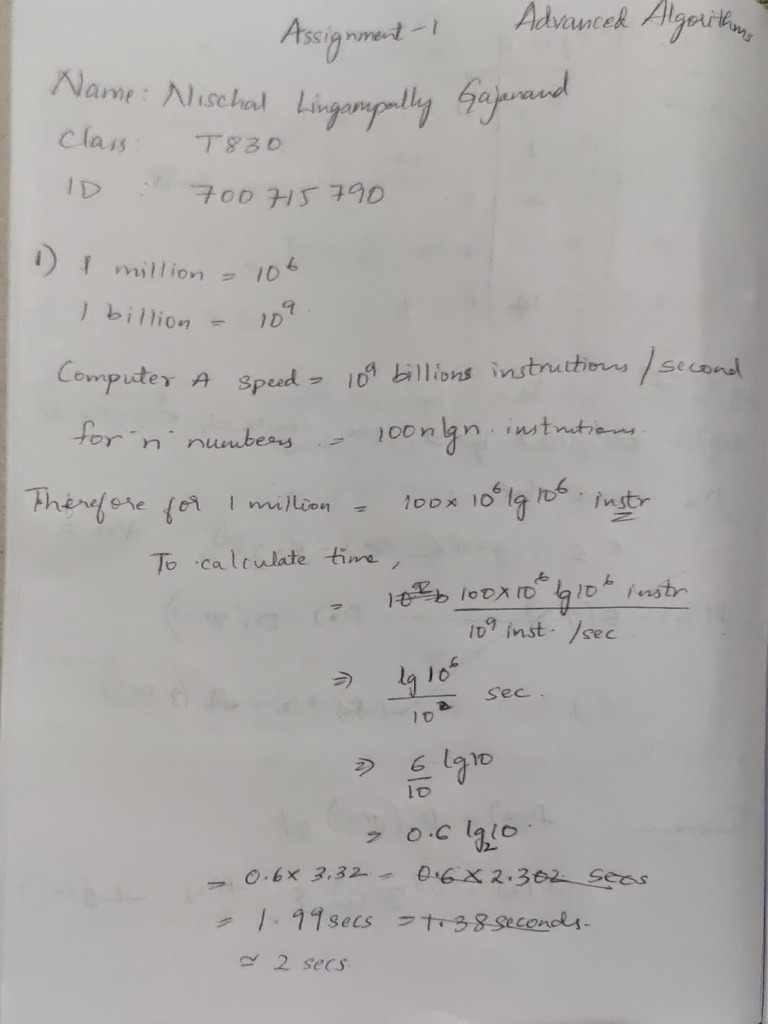 Assignment-1 Advanced Algorithms
Name: Nischal Lingampally Gajanand
Class T830
ID : 700 715 790
1) 1 million = 10⁶
1 billion = 10⁹
Computer A speed = 10⁹ billions instructions / second
for "n" numbers = 100nlgn. instrutions.
Therefore for 1 million = 100 x 10⁶ lg 10⁶. instr
To calculate time,
= 100 X 10⁶ lg 10⁶ instr
10⁹ inst. /sec
⇒ lg 10⁶
10 sec.
⇒ 6 lg10
10
⇒ 0.6 lg₂10.
= 0.6 x 3.32 = 0.6 X 2.302 secs
= 1.99 secs = 1.38 seconds.
≃ 2 secs.